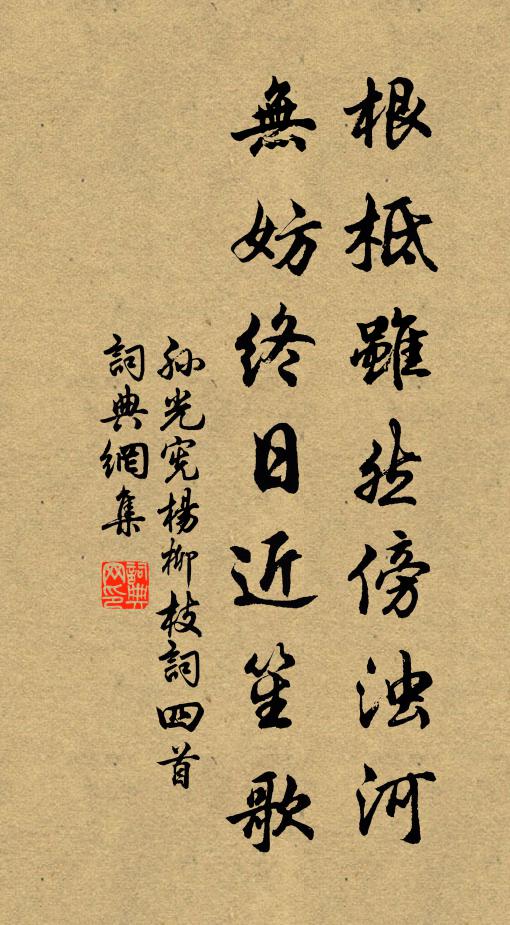 根柢雖然傍濁河
無妨終日近笙歌
孫光憲楊柳枝詞四首
詞典網集
詞典网印